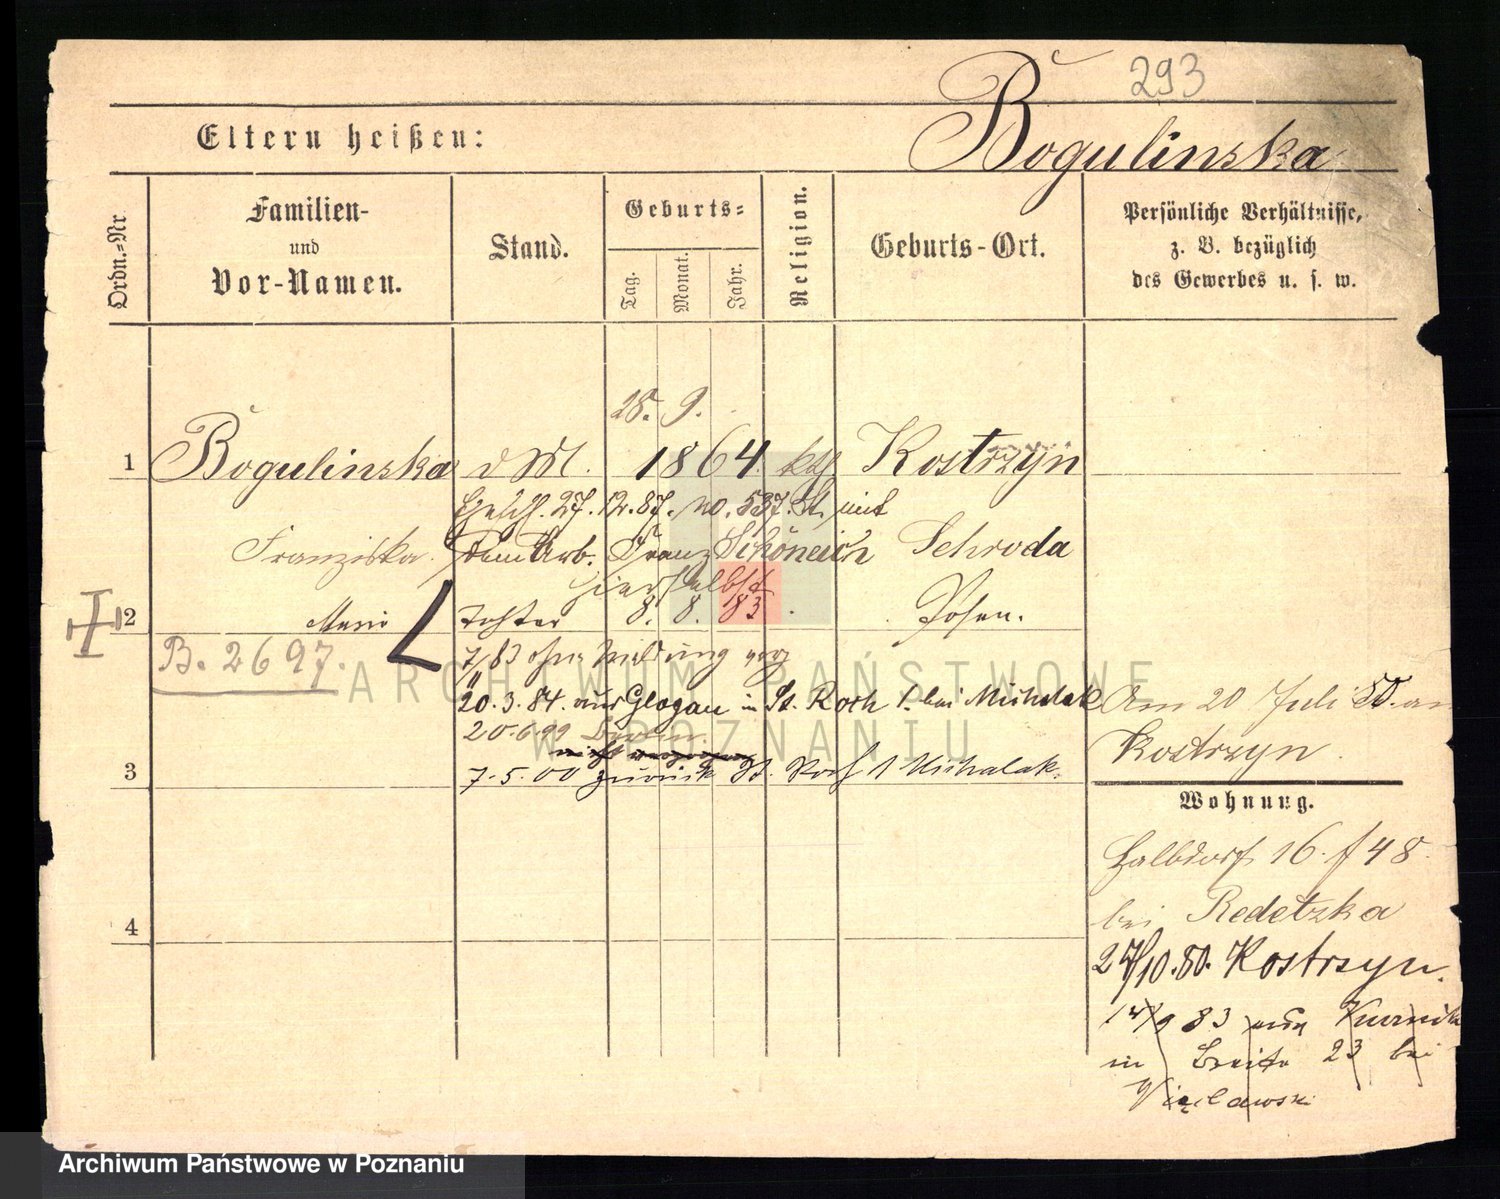 293
Eltern heißen:
Bogulinska
Ordn.-Nr.
Familien-
und
Vor-Namen.
Stand.
Geburts-
Tag.
Monat.
Jahr.
Religion.
Geburts-Ort.
Persönliche Verhältnisse,
z. B. bezüglich
des Gewerbes u. s. w.
28. 9.
1 Bogulinska d M. 1864 kth Kostrzyn
Gesch. 27.12.87. no. 537. St. mit
Franziska. dem Arb. Franz Schöneich Schroda
hierselbst
2 Marie Tochter 8. 8. 83. Posen.
B. 2697.
7/83 ohne Meldung verz
ARCHIWUM PAŃSTWOWE
W POZNANIU
20.3.84. aus Glogau in St. Roch 1. bei Michalak
20.6.99 Berlin.
3 7.5.00 zurück St. Roch 1 Michalak.
Am 20 Juli 80. an
Kostrzyn.
Wohnung.
Halbdorf 16. f 48
bei Redetzka
4
27/10.80. Kostrzyn.
14/9 83 aus Kurnik
in Breite 23 bei
Archiwum Państwowe w Poznaniu